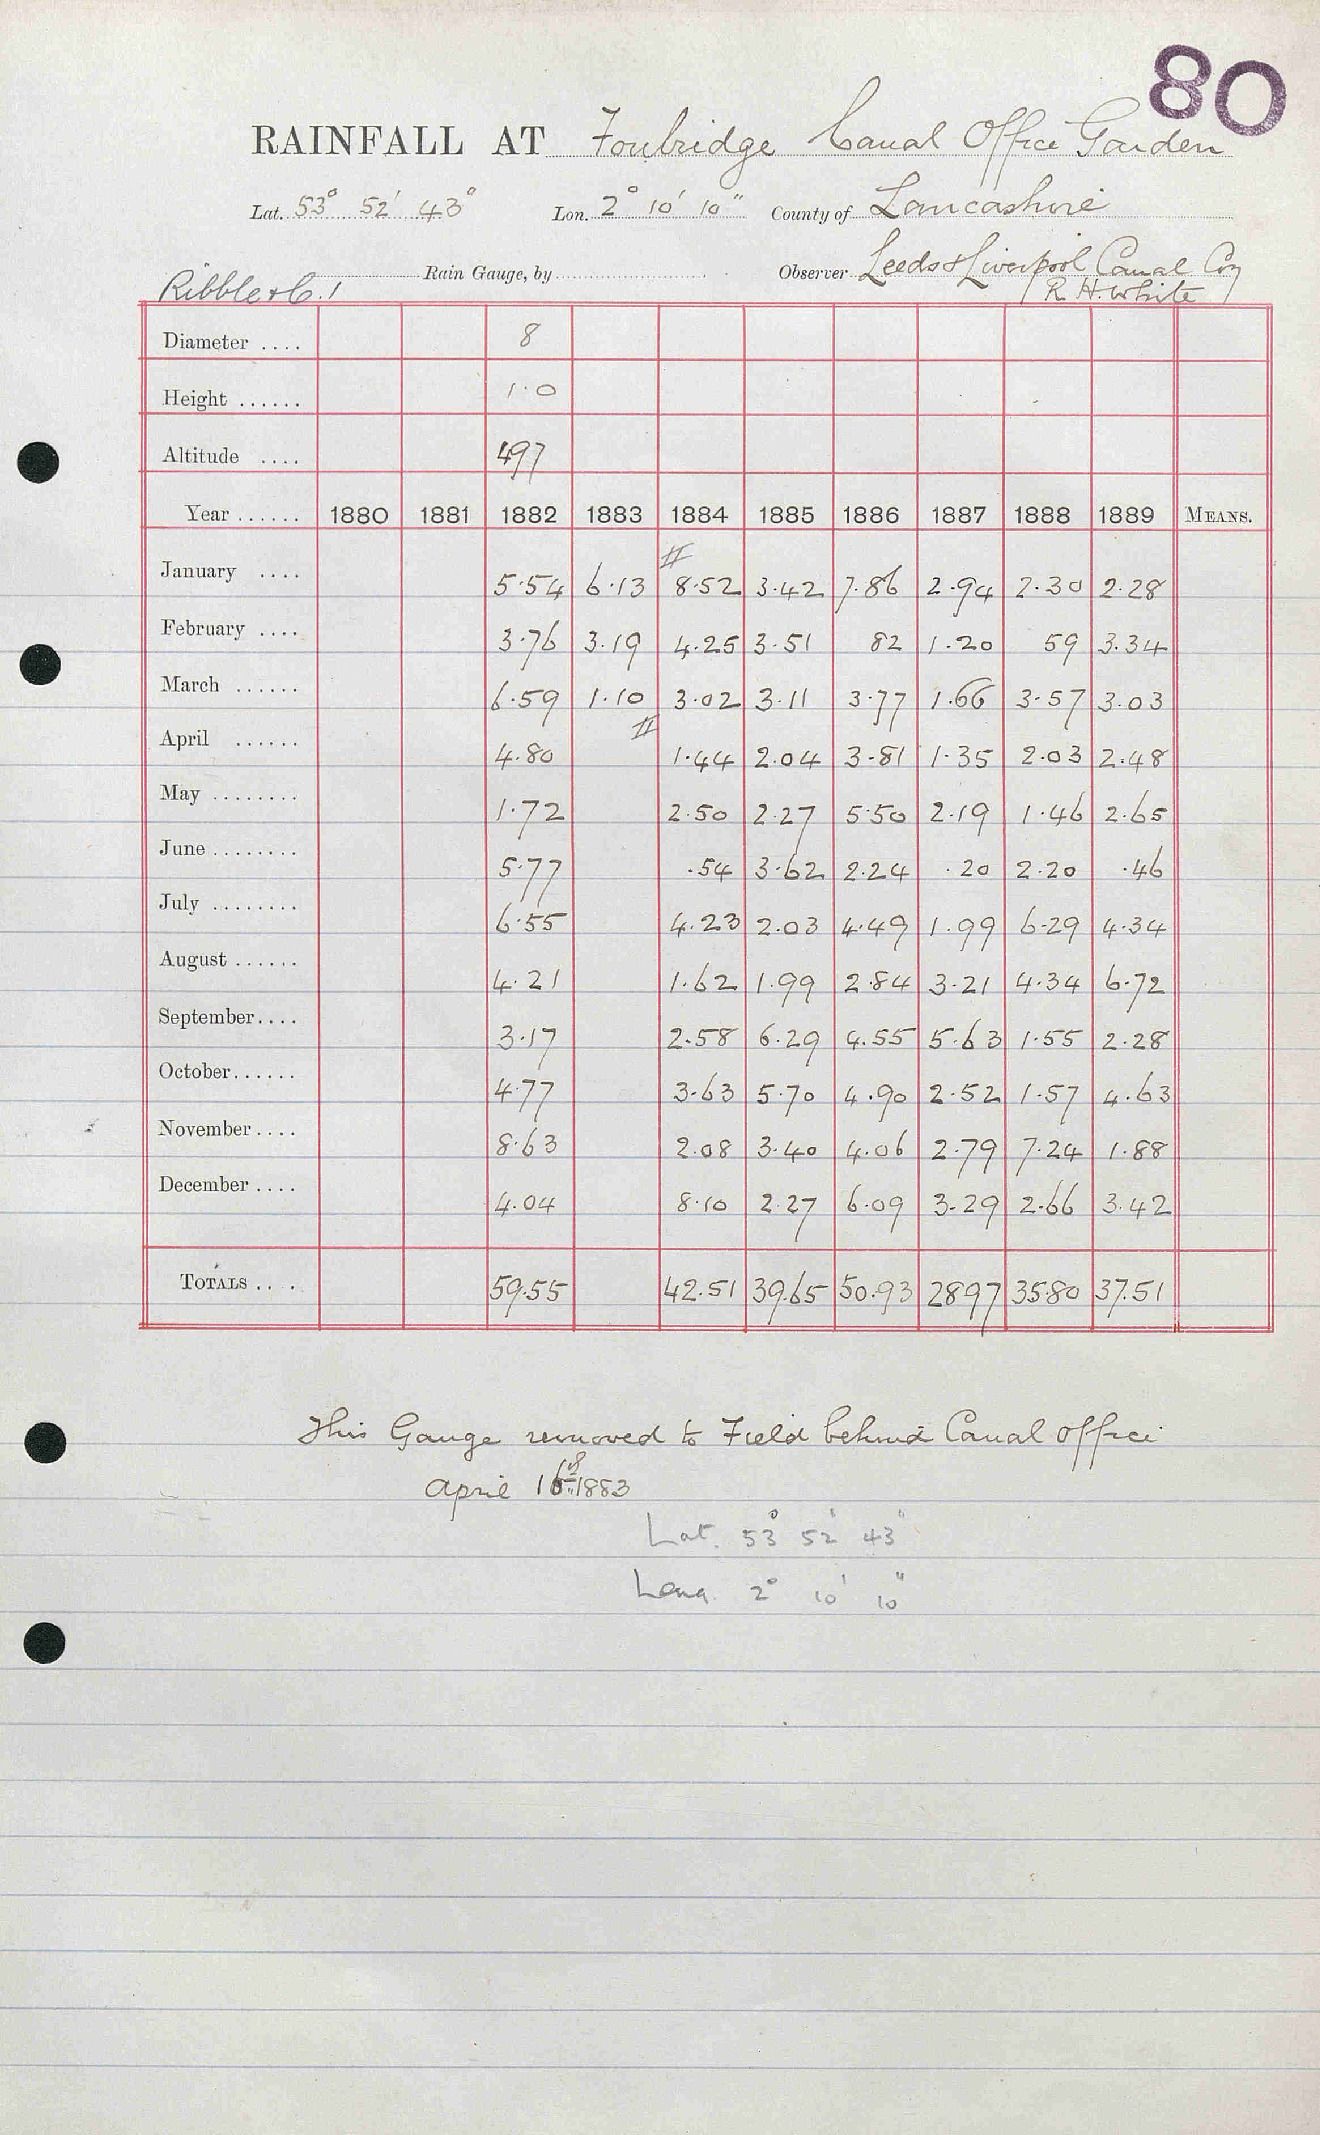 80
RAINFALL AT Foulridge Canal Office Garden
Lat. 53° 52' 43° Lon. 2° 10' 10" County of Lancashire
Rain Gauge, by Observer Leeds & Liverpool Canal Coy
Ribble & C. 1 R. H. White
Diameter .... 8
Height ...... 1.0
Altitude .... 497
Year ...... 1880 1881 1882 1883 1884 1885 1886 1887 1888 1889 MEANS.
#
January .... 5.54 6.13 8.52 3.42 7.86 2.94 2.30 2.28
February .... 3.76 3.19 4.25 3.51 82 1.20 59 3.34
March ...... 6.59 1.10 3.02 3.11 3.77 1.66 3.57 3.03
#
April ...... 4.80 1.44 2.04 3.81 1.35 2.03 2.48
May ........ 1.72 2.50 2.27 5.50 2.19 1.46 2.65
June ........ 5.77 .54 3.62 2.24 .20 2.20 .46
July ........ 6.55 4.23 2.03 4.49 1.99 6.29 4.34
August ...... 4.21 1.62 1.99 2.84 3.21 4.34 6.72
September .... 3.17 2.58 6.29 4.55 5.63 1.55 2.28
October ...... 4.77 3.63 5.70 4.90 2.52 1.57 4.63
November .... 8.63 2.08 3.40 4.06 2.79 7.24 1.88
December .... 4.04 8.10 2.27 6.09 3.29 2.66 3.42
TOTALS .... 59.55 42.51 39.65 50.93 28.97 35.80 37.51
This Gauge removed to Field behind Canal Office
April 16th 1883
Lat. 53° 52' 43"
Long. 2° 10' 10"